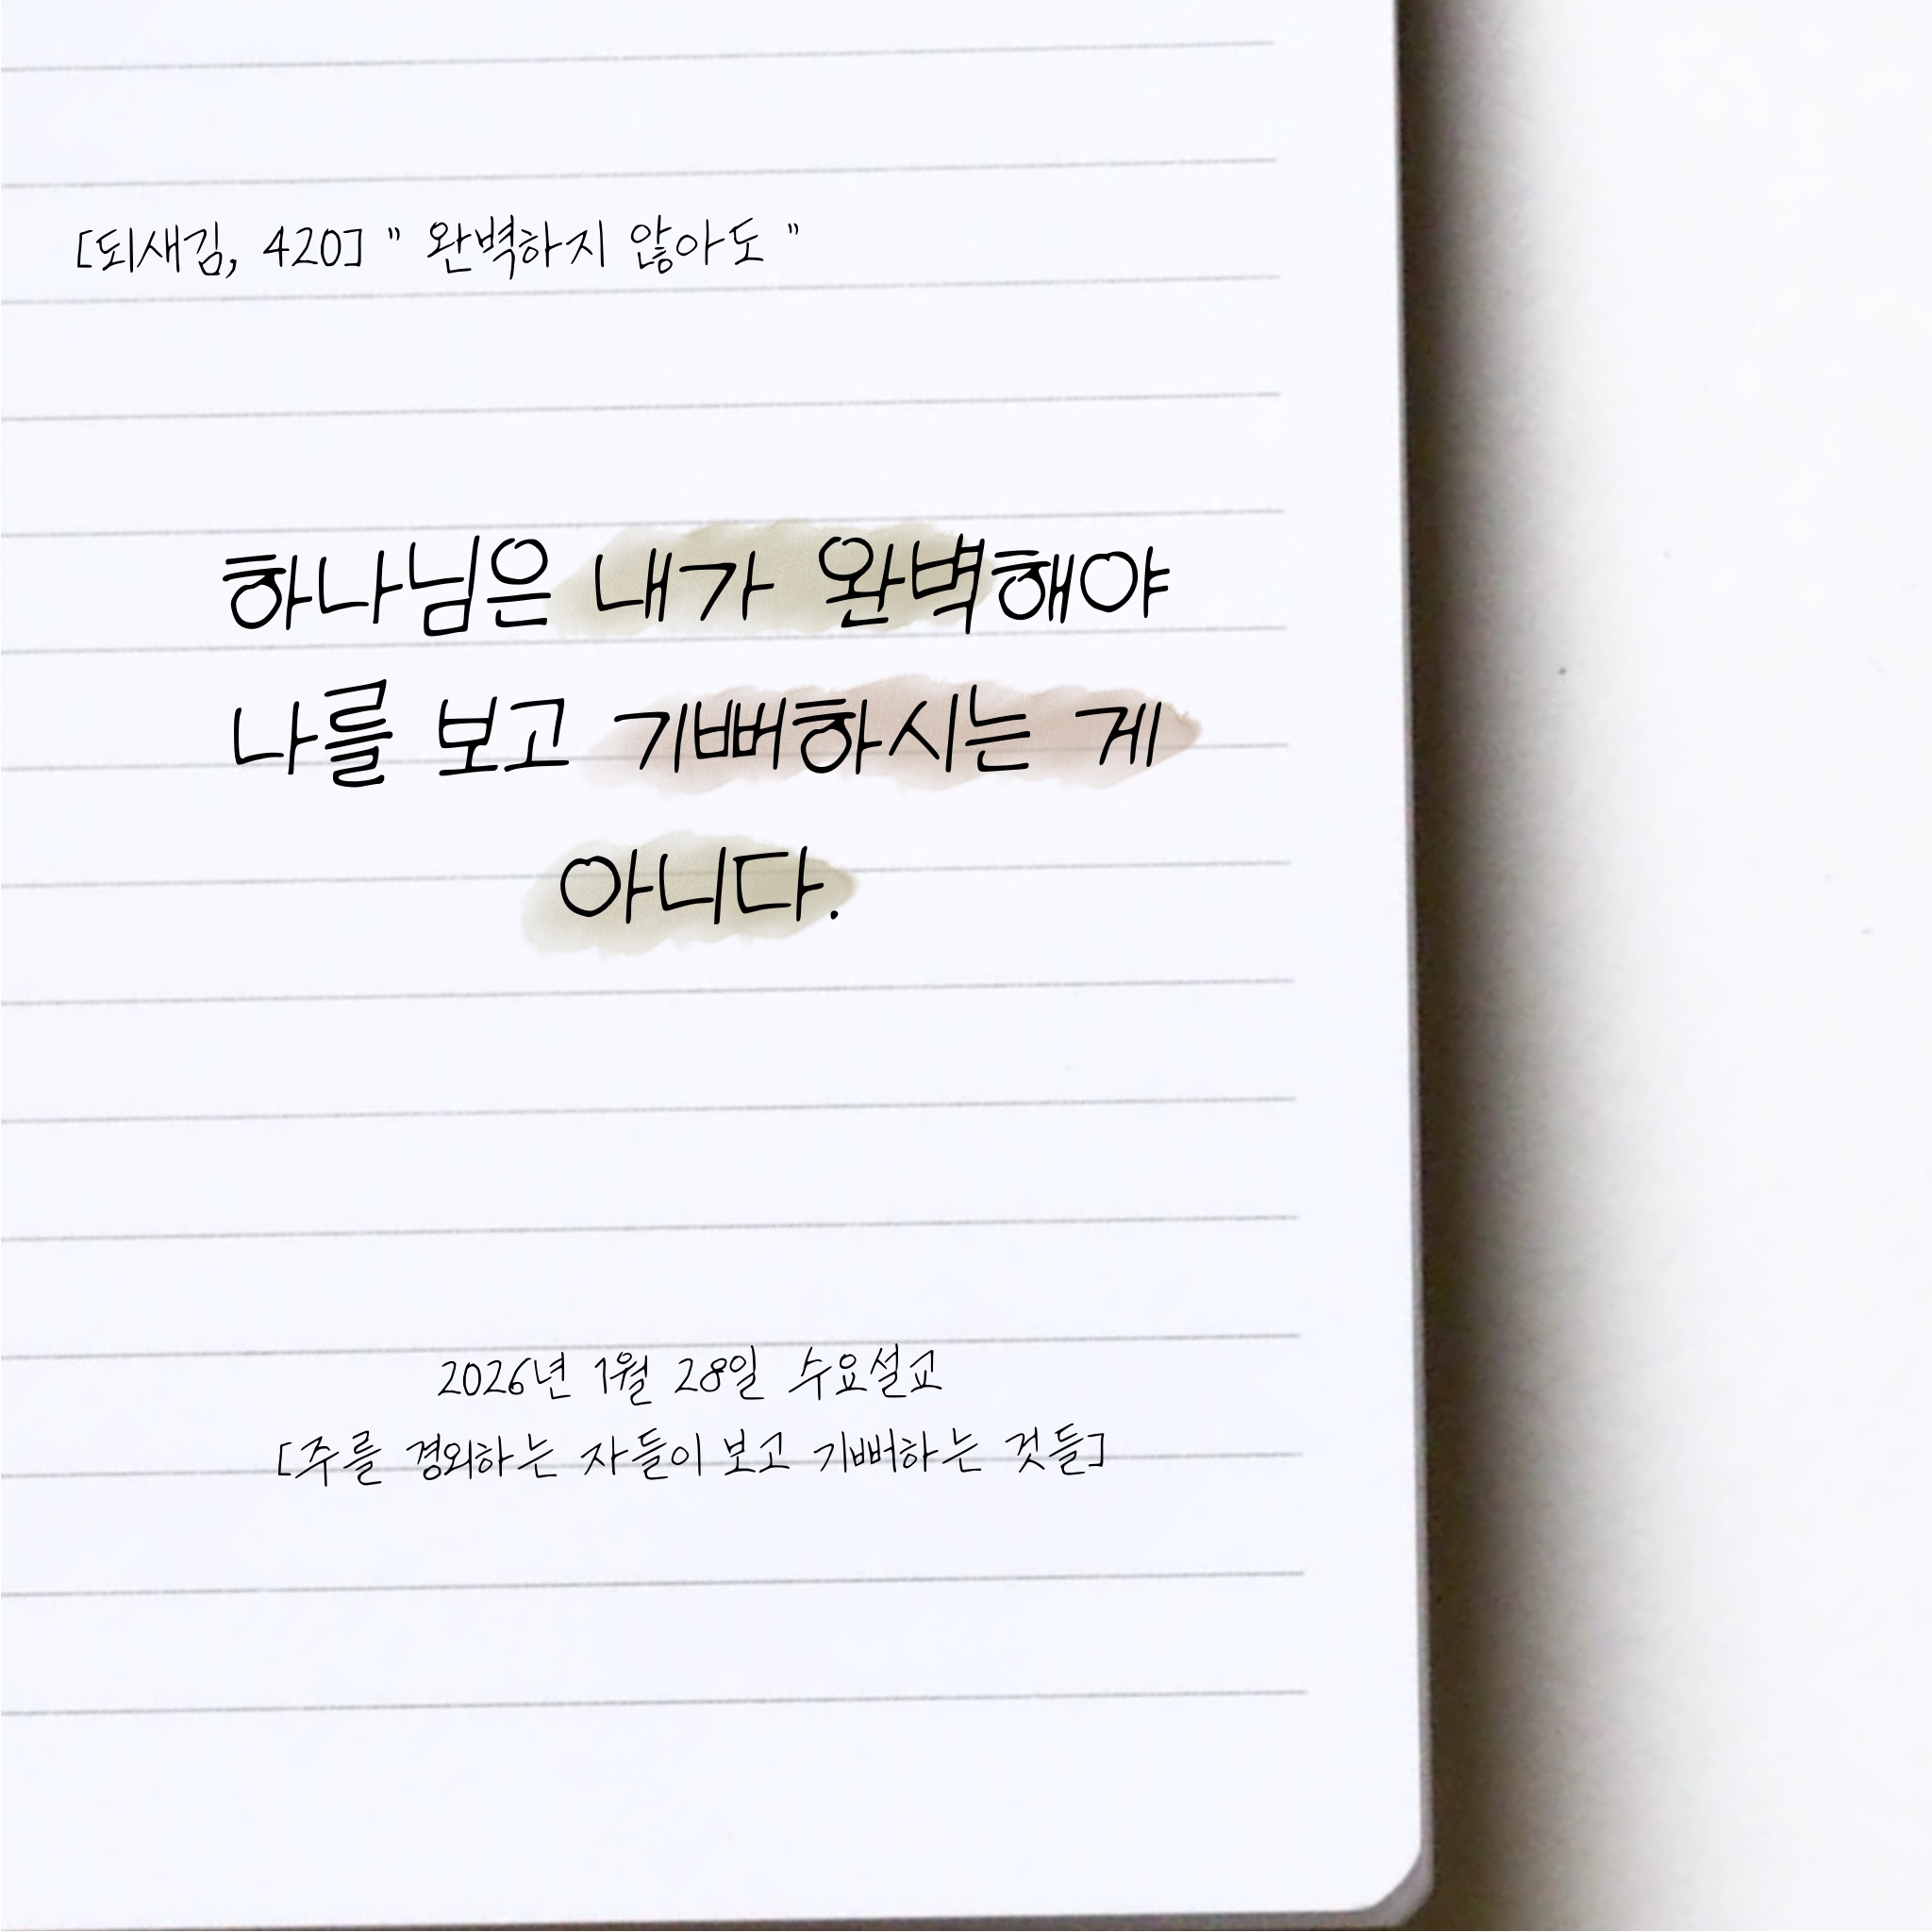 [되새김, 420] " 완벽하지 않아도 "
하나님은 내가 완벽해야
나를 보고 기뻐하시는 게
아니다.
2026년 1월 28일 수요설교
[주를 경외하는 자들이 보고 기뻐하는 것들]